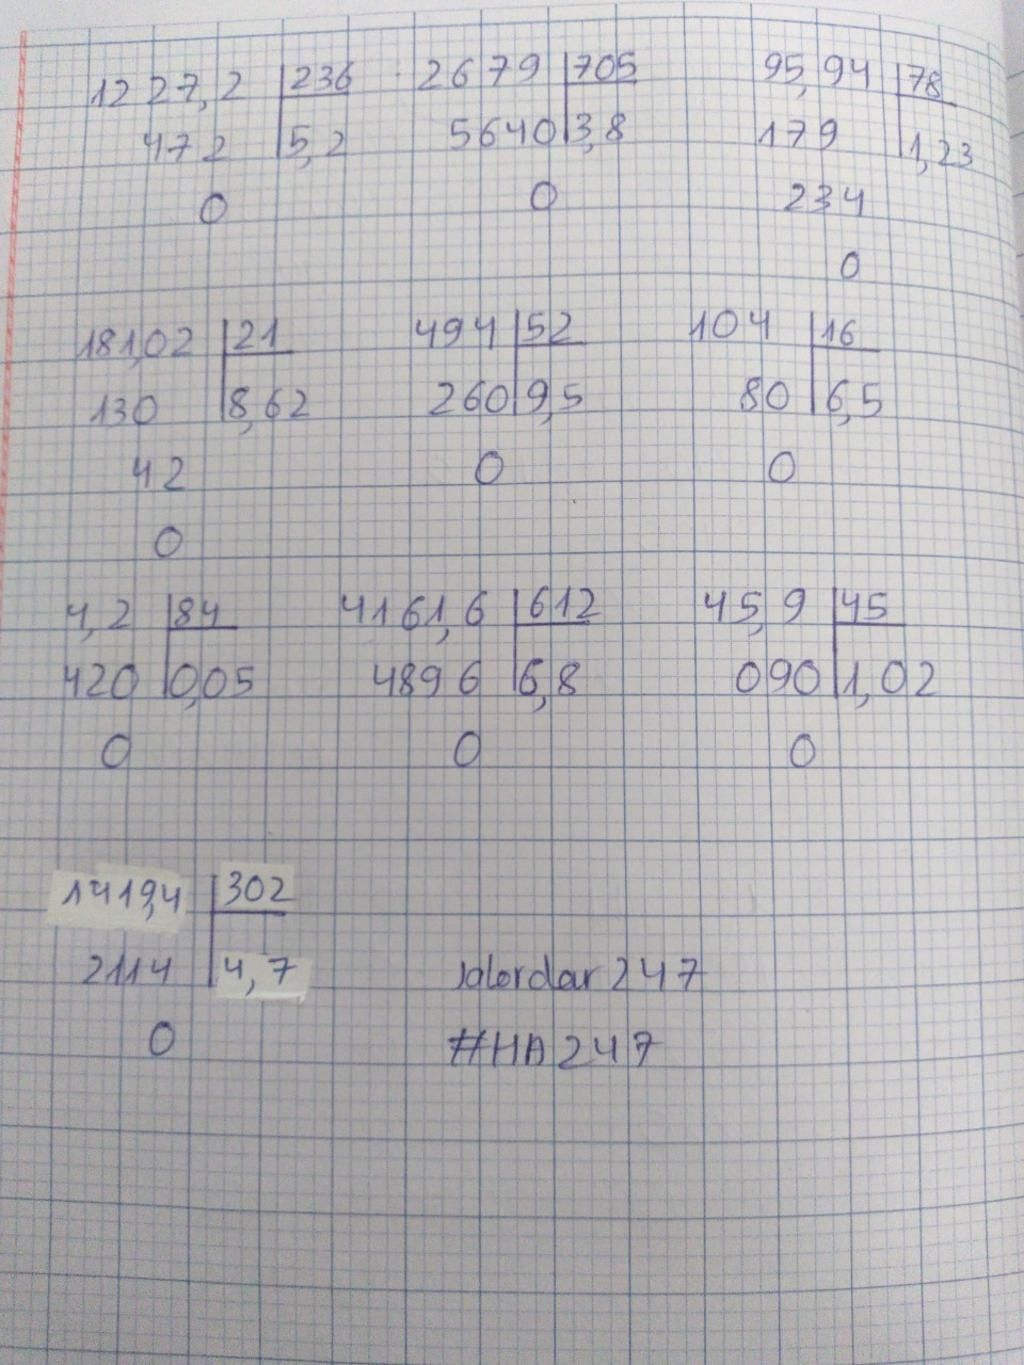 1227,2 236 2679 705 95,94 78
472 5,2 5640 3,8 179 1,23
0 0 234
0
181,02 21 494 52 104 16
130 8,62 260 9,5 80 6,5
42 0 0
0
4,2 84 4161,6 612 45,9 45
420 0,05 4896 6,8 090 1,02
0 0 0
1419,4 302
2114 4,7 247
0 #HA247